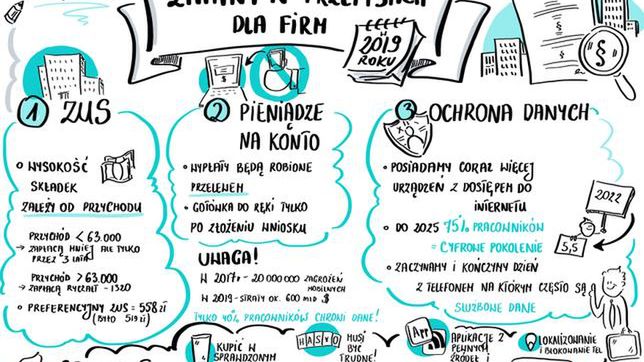 ZMIANY W PRZEPISACH
DLA FIRM
W
2019
ROKU
§
1 ZUS
• WYSOKOŚĆ
SKŁADEK
ZALEŻY OD PRZYCHODU
PRZYCHÓD < 63.000
→ ZAPŁACĄ MNIEJ ALE TYLKO
PRZEZ 3 LATA
PRZYCHÓD > 63.000
→ ZAPŁACĄ RYCZAŁT - 1320
• PREFERENCYJNY ZUS = 558 zł
(BYŁO 519 zł)
2 PIENIĄDZE
NA KONTO
• WYPŁATY BĘDĄ ROBIONE
PRZELEWEM
• GOTÓWKA DO RĘKI TYLKO
PO ZŁOŻENIU WNIOSKU
UWAGA!
W 2017r - 20 000 000 ZAGROŻEŃ
MOBILNYCH
W 2019 - STRATY OK. 600 mld $
TYLKO 40% PRACOWNIKÓW CHRONI DANE!
3 OCHRONA DANYCH
• POSIADAMY CORAZ WIĘCEJ
URZĄDZEŃ Z DOSTĘPEM DO
INTERNETU
• DO 2025 75% PRACOWNIKÓW
= CYFROWE POKOLENIE
• ZACZYNAMY I KOŃCZYMY DZIEŃ
Z TELEFONEM NA KTÓRYM CZĘSTO SĄ
SŁUŻBOWE DANE
2022
5,5
KUPIĆ W
SPRAWDZONYM
HASŁO
MUSI
BYĆ
TRUDNE!
App
APLIKACJE Z
PEWNYCH
ŹRÓDEŁ
LOKALIZOWANIE